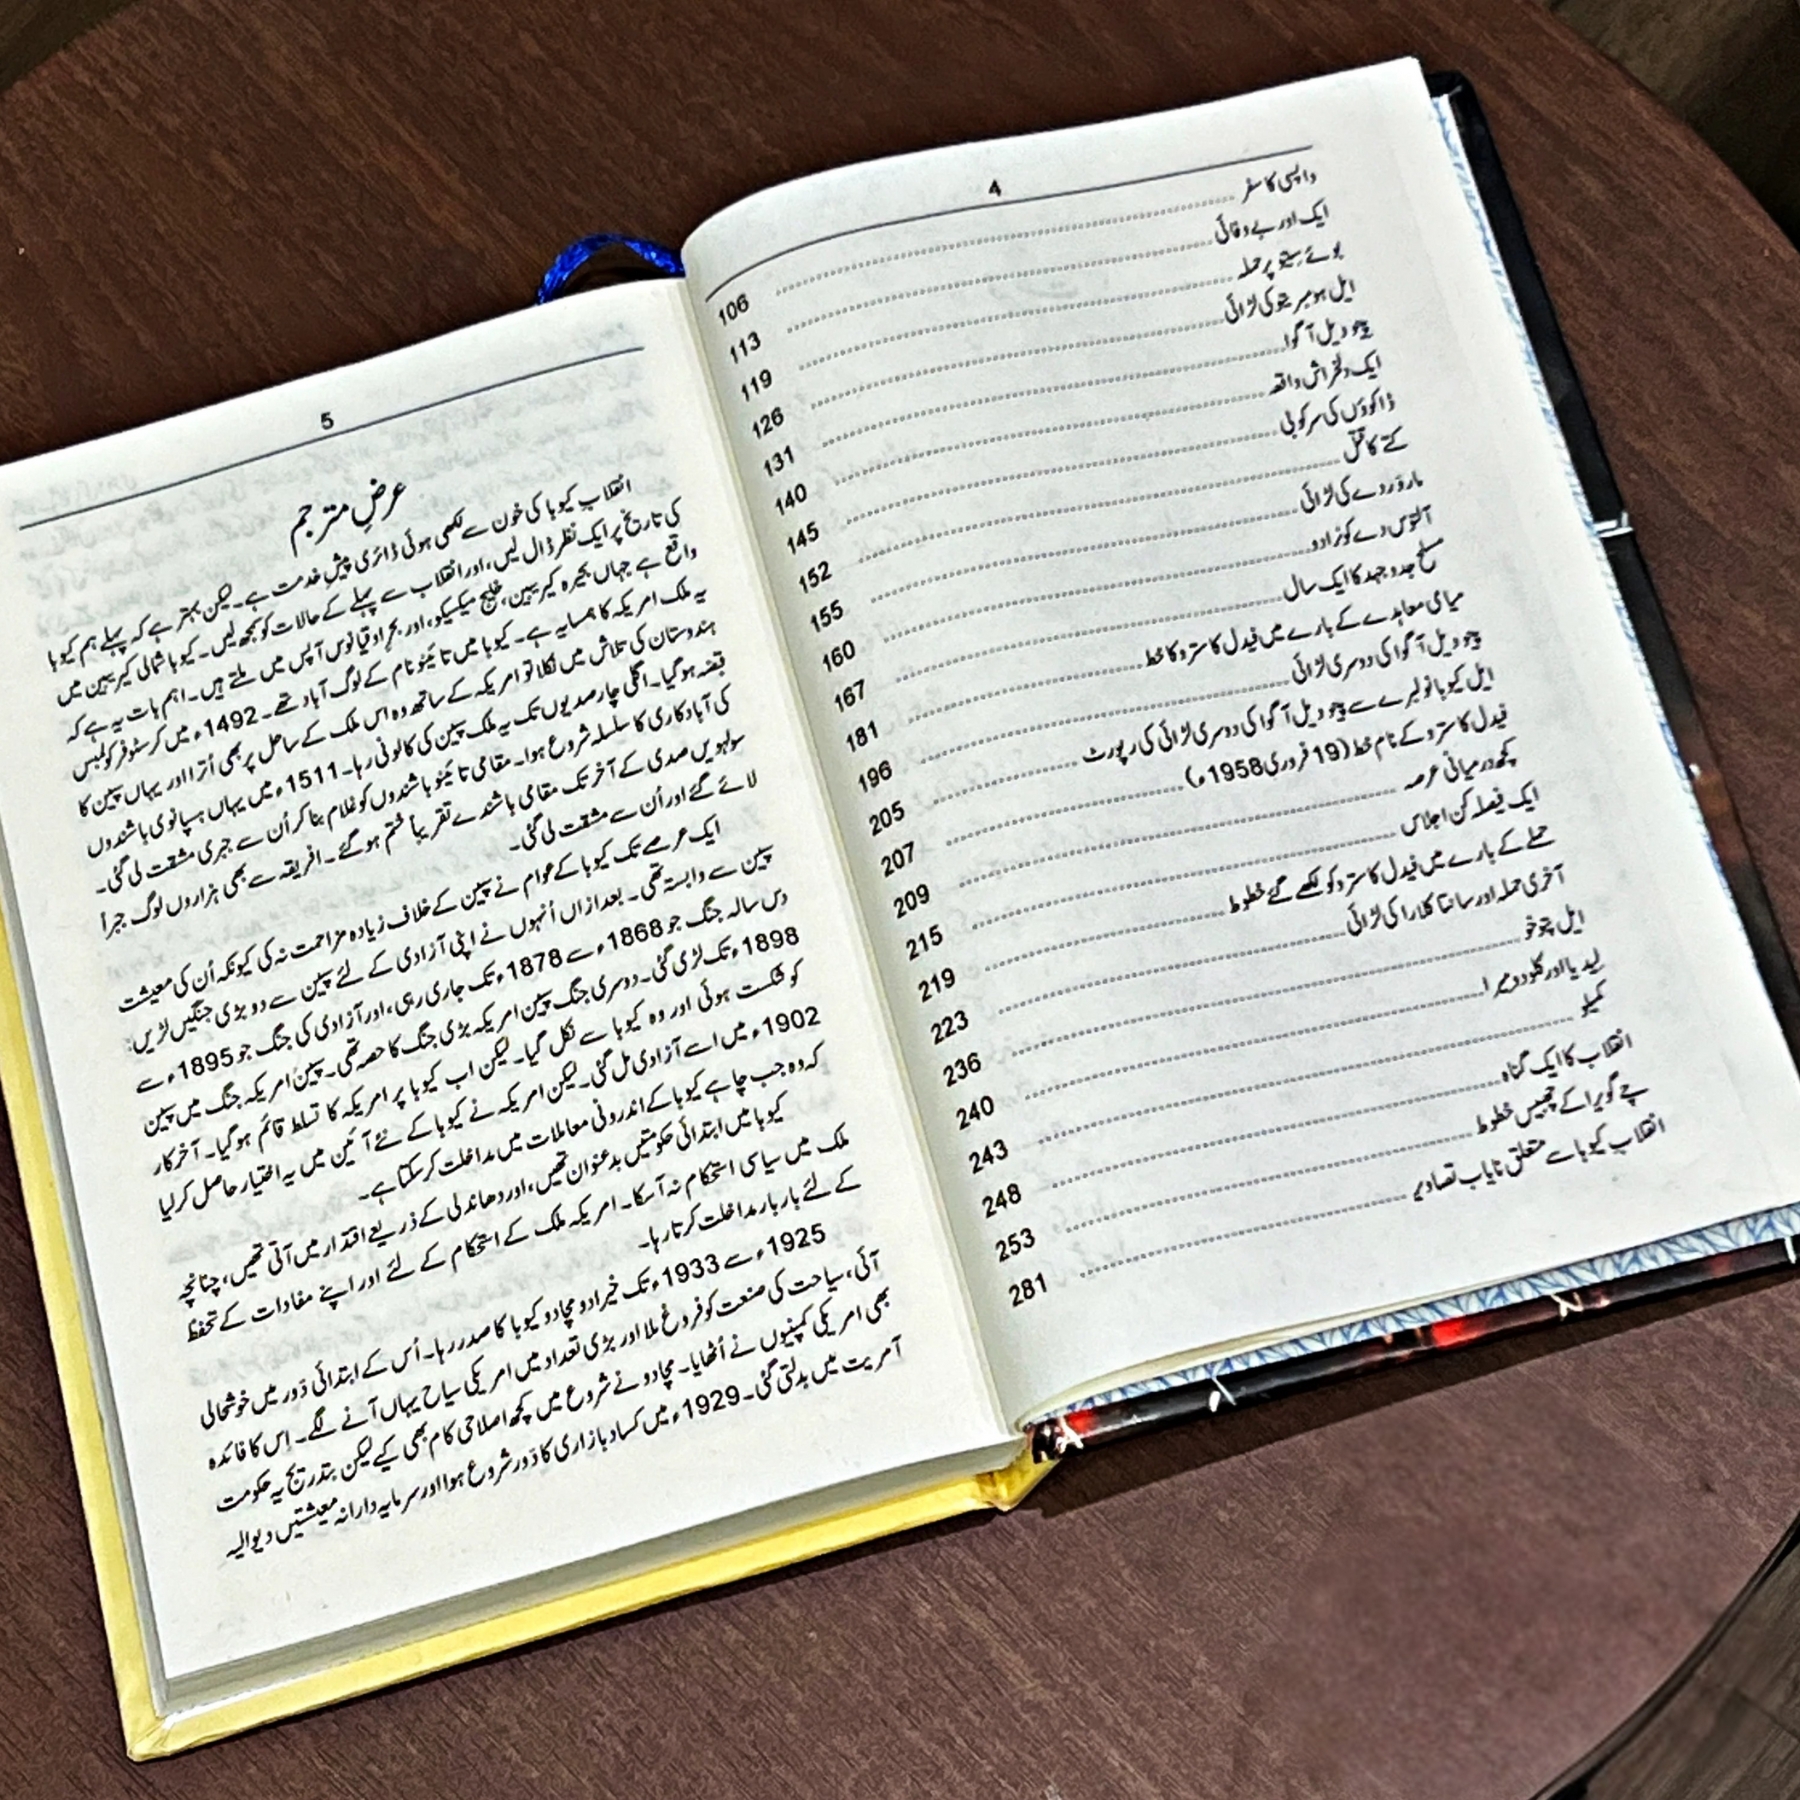 4
واپسی کا سفر ........ 106
ایک اور بے وفائی ........ 113
بوئے سیتو پر حملہ ........ 119
ایل ہومبریتو کی لڑائی ........ 126
پِنو دیل آگوا ........ 131
ایک دلخراش واقعہ ........ 140
ڈاکوؤں کی سرکوبی ........ 145
کتے کا قتل ........ 152
مارؤ ردے کی لڑائی ........ 155
آلتوس دے کونرادو ........ 160
مسلح جدوجہد کا ایک سال ........ 167
میامی معاہدے کے بارے میں فیدل کاسترو کا خط ........ 181
پِنو دیل آگوا کی دوسری لڑائی ........ 196
ایل کیوبانو لبرے سے پِنو دیل آگوا کی دوسری لڑائی کی رپورٹ ........ 205
فیدل کاسترو کے نام خط (19 فروری 1958ء) ........ 207
کچھ درمیانی عرصہ ........ 209
ایک فیصلہ کن اجلاس ........ 215
حملے کے بارے میں فیدل کاسترو کو لکھے گئے خطوط ........ 219
آخری حملہ اور سانتا کلارا کی لڑائی ........ 223
ایل پتوخو ........ 236
لیدیا اور کلودومیرا ........ 240
کمیلو ........ 243
انقلاب کا ایک گناہ ........ 248
چے گویرا کے چھبیس خطوط ........ 253
انقلابِ کیوبا سے متعلق نایاب تصاویر ........ 281
5
عرضِ مترجم
انقلابِ کیوبا کی خون سے لکھی ہوئی ڈائری پیشِ خدمت ہے۔ لیکن بہتر ہے کہ پہلے ہم کیوبا
کی تاریخ پر ایک نظر ڈال لیں، اور انقلاب سے پہلے کے حالات کو سمجھ لیں۔ کیوبا شمالی کیریبین میں
واقع ہے جہاں بحیرہ کیریبین، خلیج میکسیکو، اور بحرِ اوقیانوس آپس میں ملتے ہیں۔ اہم بات یہ ہے کہ
یہ ملک امریکہ کا ہمسایہ ہے۔ کیوبا میں تائینو نام کے لوگ آباد تھے۔ 1492ء میں کرسٹوفر کولمبس
ہندوستان کی تلاش میں نکلا تو امریکہ کے ساتھ وہ اس ملک کے ساحل پر بھی اُترا اور یہاں سپین کا
قبضہ ہو گیا۔ اگلی چار صدیوں تک یہ ملک سپین کی کالونی رہا۔ 1511ء میں یہاں ہسپانوی باشندوں
کی آبادکاری کا سلسلہ شروع ہوا۔ مقامی تائینو باشندوں کو غلام بنا کر اُن سے جبری مشقت لی گئی۔
سولہویں صدی کے آخر تک مقامی باشندے تقریباً ختم ہو گئے۔ افریقہ سے بھی ہزاروں لوگ جبراً
لائے گئے اور اُن سے مشقت لی گئی۔
ایک عرصے تک کیوبا کے عوام نے سپین کے خلاف زیادہ مزاحمت نہ کی کیونکہ اُن کی معیشت
سپین سے وابستہ تھی۔ بعد ازاں اُنہوں نے اپنی آزادی کے لئے سپین سے دو بڑی جنگیں لڑیں:
دس سالہ جنگ جو 1868ء سے 1878ء تک جاری رہی، اور آزادی کی جنگ جو 1895ء سے
1898ء تک لڑی گئی۔ دوسری جنگ سپین امریکہ بڑی جنگ کا حصہ تھی۔ سپین امریکہ جنگ میں سپین
کو شکست ہوئی اور وہ کیوبا سے نکل گیا۔ لیکن اب کیوبا پر امریکہ کا تسلط قائم ہو گیا۔ آخرکار
1902ء میں اسے آزادی مل گئی۔ لیکن امریکہ نے کیوبا کے نئے آئین میں یہ اختیار حاصل کر لیا
کہ وہ جب چاہے کیوبا کے اندرونی معاملات میں مداخلت کر سکتا ہے۔
کیوبا میں ابتدائی حکومتیں بدعنوان تھیں، اور دھاندلی کے ذریعے اقتدار میں آتی تھیں، چنانچہ
ملک میں سیاسی استحکام نہ آ سکا۔ امریکہ ملک کے استحکام کے لئے اور اپنے مفادات کے تحفظ
کے لئے بار بار مداخلت کرتا رہا۔
1925ء سے 1933ء تک خیرادو مچادو کیوبا کا صدر رہا۔ اُس کے ابتدائی دَور میں خوشحالی
آئی، سیاحت کی صنعت کو فروغ ملا اور بڑی تعداد میں امریکی سیاح یہاں آنے لگے۔ اِس کا فائدہ
بھی امریکی کمپنیوں نے اُٹھایا۔ مچادو نے شروع میں کچھ اصلاحی کام بھی کیے لیکن بتدریج یہ حکومت
آمریت میں بدلتی گئی۔ 1929ء میں کساد بازاری کا دَور شروع ہوا اور سرمایہ دارانہ معیشتیں دیوالیہ